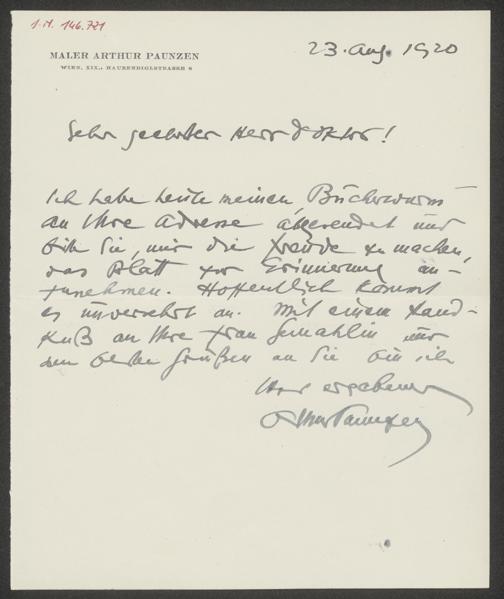 I.N. 146.721
MALER ARTHUR PAUNZEN
WIEN, XIX., HAUBENBIGLSTRASSE 8
23. Aug. 1920
Sehr geehrter Herr Doktor!
Ich habe heute meinen „Bücherwurm"
an Ihre Adresse abgesendet und
bitte Sie, mir die Freude zu machen,
das Blatt zur Erinnerung an-
zunehmen. Hoffentlich kommt
es unversehrt an. Mit einem Hand-
kuß an Ihre Frau Gemahlin und
den besten Grüßen an Sie bin ich
Ihr ergebener
Arthur Paunzen